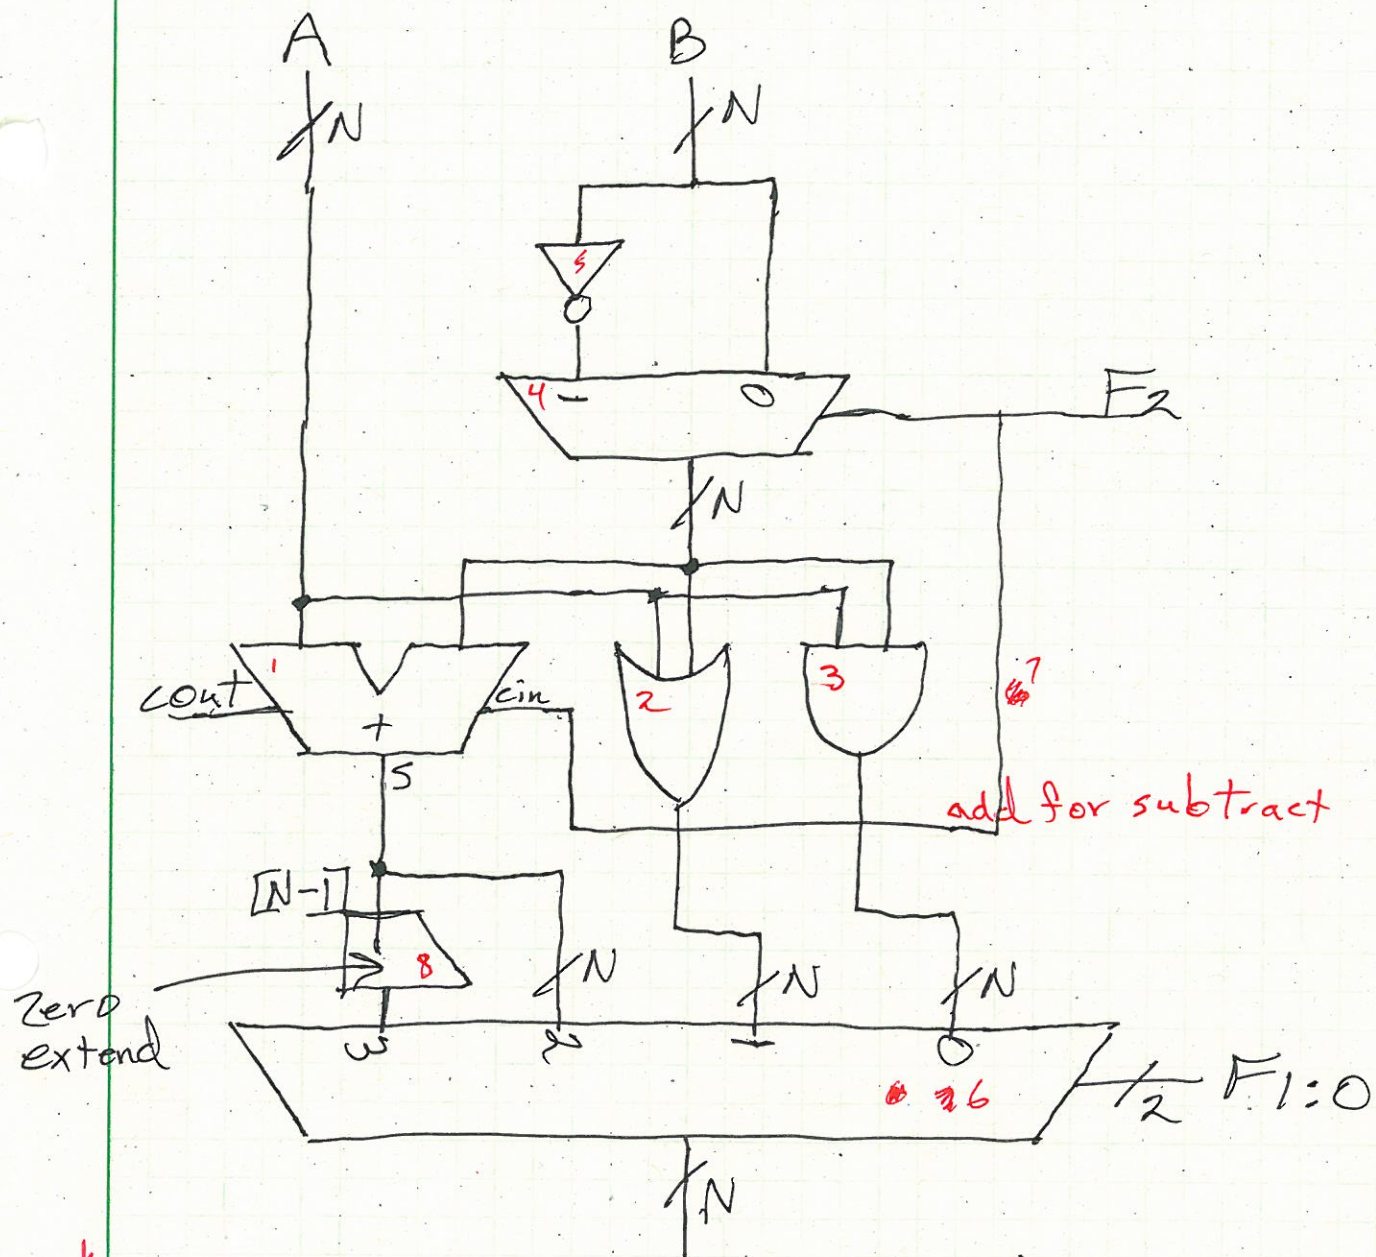 A B
N N
5
4 1 0 F2
N
1 cout + cin 2 3 7
S
add for subtract
[N-1]
8 N N N
Zero
extend
3 2 1 0
6 2 F1:0
N